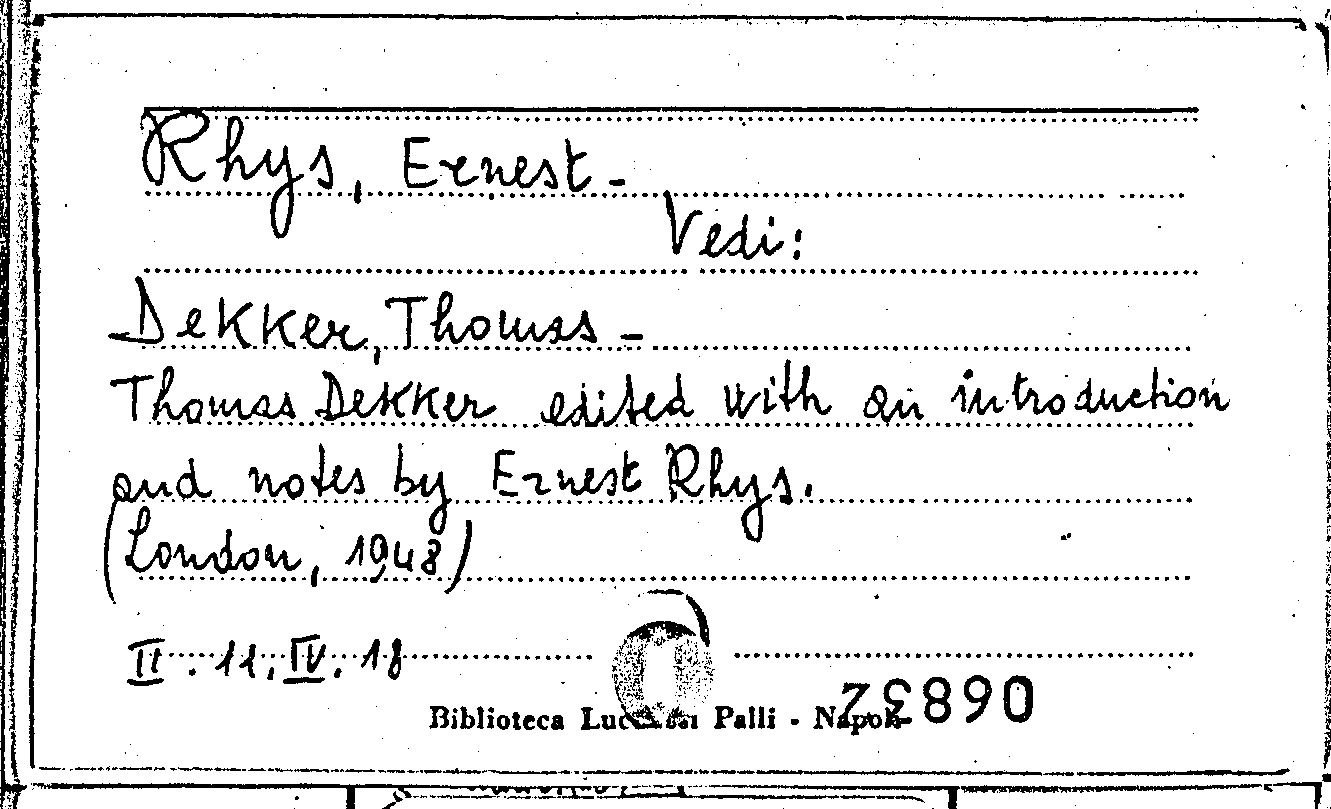 Rhys, Ernest -
Vedi:
Dekker, Thomas -
Thomas Dekker edited with an introduction
and notes by Ernest Rhys.
(London, 1948)
II. 11. IV. 18
Biblioteca Lucchesi Palli - Napoli
06832